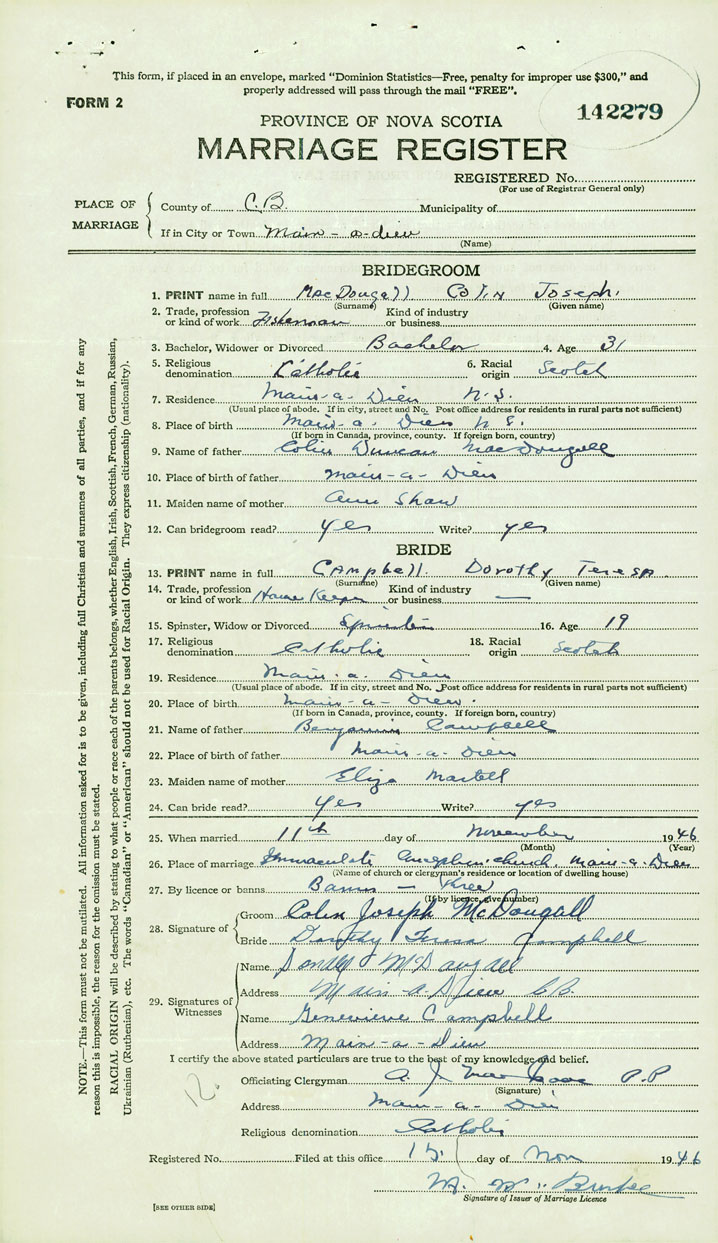 This form, if placed in an envelope, marked "Dominion Statistics—Free, penalty for improper use $300," and
properly addressed will pass through the mail "FREE".
FORM 2
142279
PROVINCE OF NOVA SCOTIA
MARRIAGE REGISTER
REGISTERED No.
(For use of Registrar General only)
PLACE OF MARRIAGE
County of C.B. Municipality of
If in City or Town Main-a-dieu
(Name)
BRIDEGROOM
1. PRINT name in full MacDougall Colin Joseph.
(Surname) (Given name)
2. Trade, profession or kind of work Fisherman Kind of industry or business
3. Bachelor, Widower or Divorced Bachelor 4. Age 31
5. Religious denomination Catholic 6. Racial origin Scotch
7. Residence Main-a-Dieu N.S.
(Usual place of abode. If in city, street and No. Post office address for residents in rural parts not sufficient)
8. Place of birth Main-a-Dieu N.S.
(If born in Canada, province, county. If foreign born, country)
9. Name of father Colin Duncan MacDougall
10. Place of birth of father Main-a-Dieu
11. Maiden name of mother Ann Shaw
12. Can bridegroom read? yes Write? yes
BRIDE
13. PRINT name in full Campbell Dorothy Teresa
(Surname) (Given name)
14. Trade, profession or kind of work House Keeper Kind of industry or business —
15. Spinster, Widow or Divorced Spinster 16. Age 19
17. Religious denomination Catholic 18. Racial origin Scotch
19. Residence Main-a-Dieu
(Usual place of abode. If in city, street and No. Post office address for residents in rural parts not sufficient)
20. Place of birth Main-a-Dieu
(If born in Canada, province, county. If foreign born, country)
21. Name of father Benjamin Campbell
22. Place of birth of father Main-a-Dieu
23. Maiden name of mother Eliza Martell
24. Can bride read? yes Write? yes
25. When married 11th day of November 1946
(Month) (Year)
26. Place of marriage Immaculate Conception church, Main-a-Dieu
(Name of church or clergyman's residence or location of dwelling house)
27. By licence or banns Banns — Three
(If by licence, give number)
28. Signature of
Groom Colin Joseph McDougall
Bride Dorothy Teresa Campbell
29. Signatures of Witnesses
Name McDougall
Address Main-a-Dieu C.B.
Name Genevieve Campbell
Address Main-a-Dieu
I certify the above stated particulars are true to the best of my knowledge and belief.
Officiating Clergyman A. J. MacIsaac P.P
(Signature)
12.
Address Main-a-Dieu
Religious denomination Catholic
Registered No. Filed at this office day of Nov 1946
M. W. Burke
Signature of Issuer of Marriage Licence
[SEE OTHER SIDE]
NOTE.—This form must not be mutilated. All information asked for is to be given, including full Christian and surnames of all parties, and if for any
reason this is impossible, the reason for the omission must be stated.
RACIAL ORIGIN will be described by stating to what people or race each of the parents belongs, whether English, Irish, Scottish, French, German, Russian,
Ukrainian (Ruthenian), etc. The words "Canadian" or "American" should not be used for Racial Origin. They express citizenship (nationality).